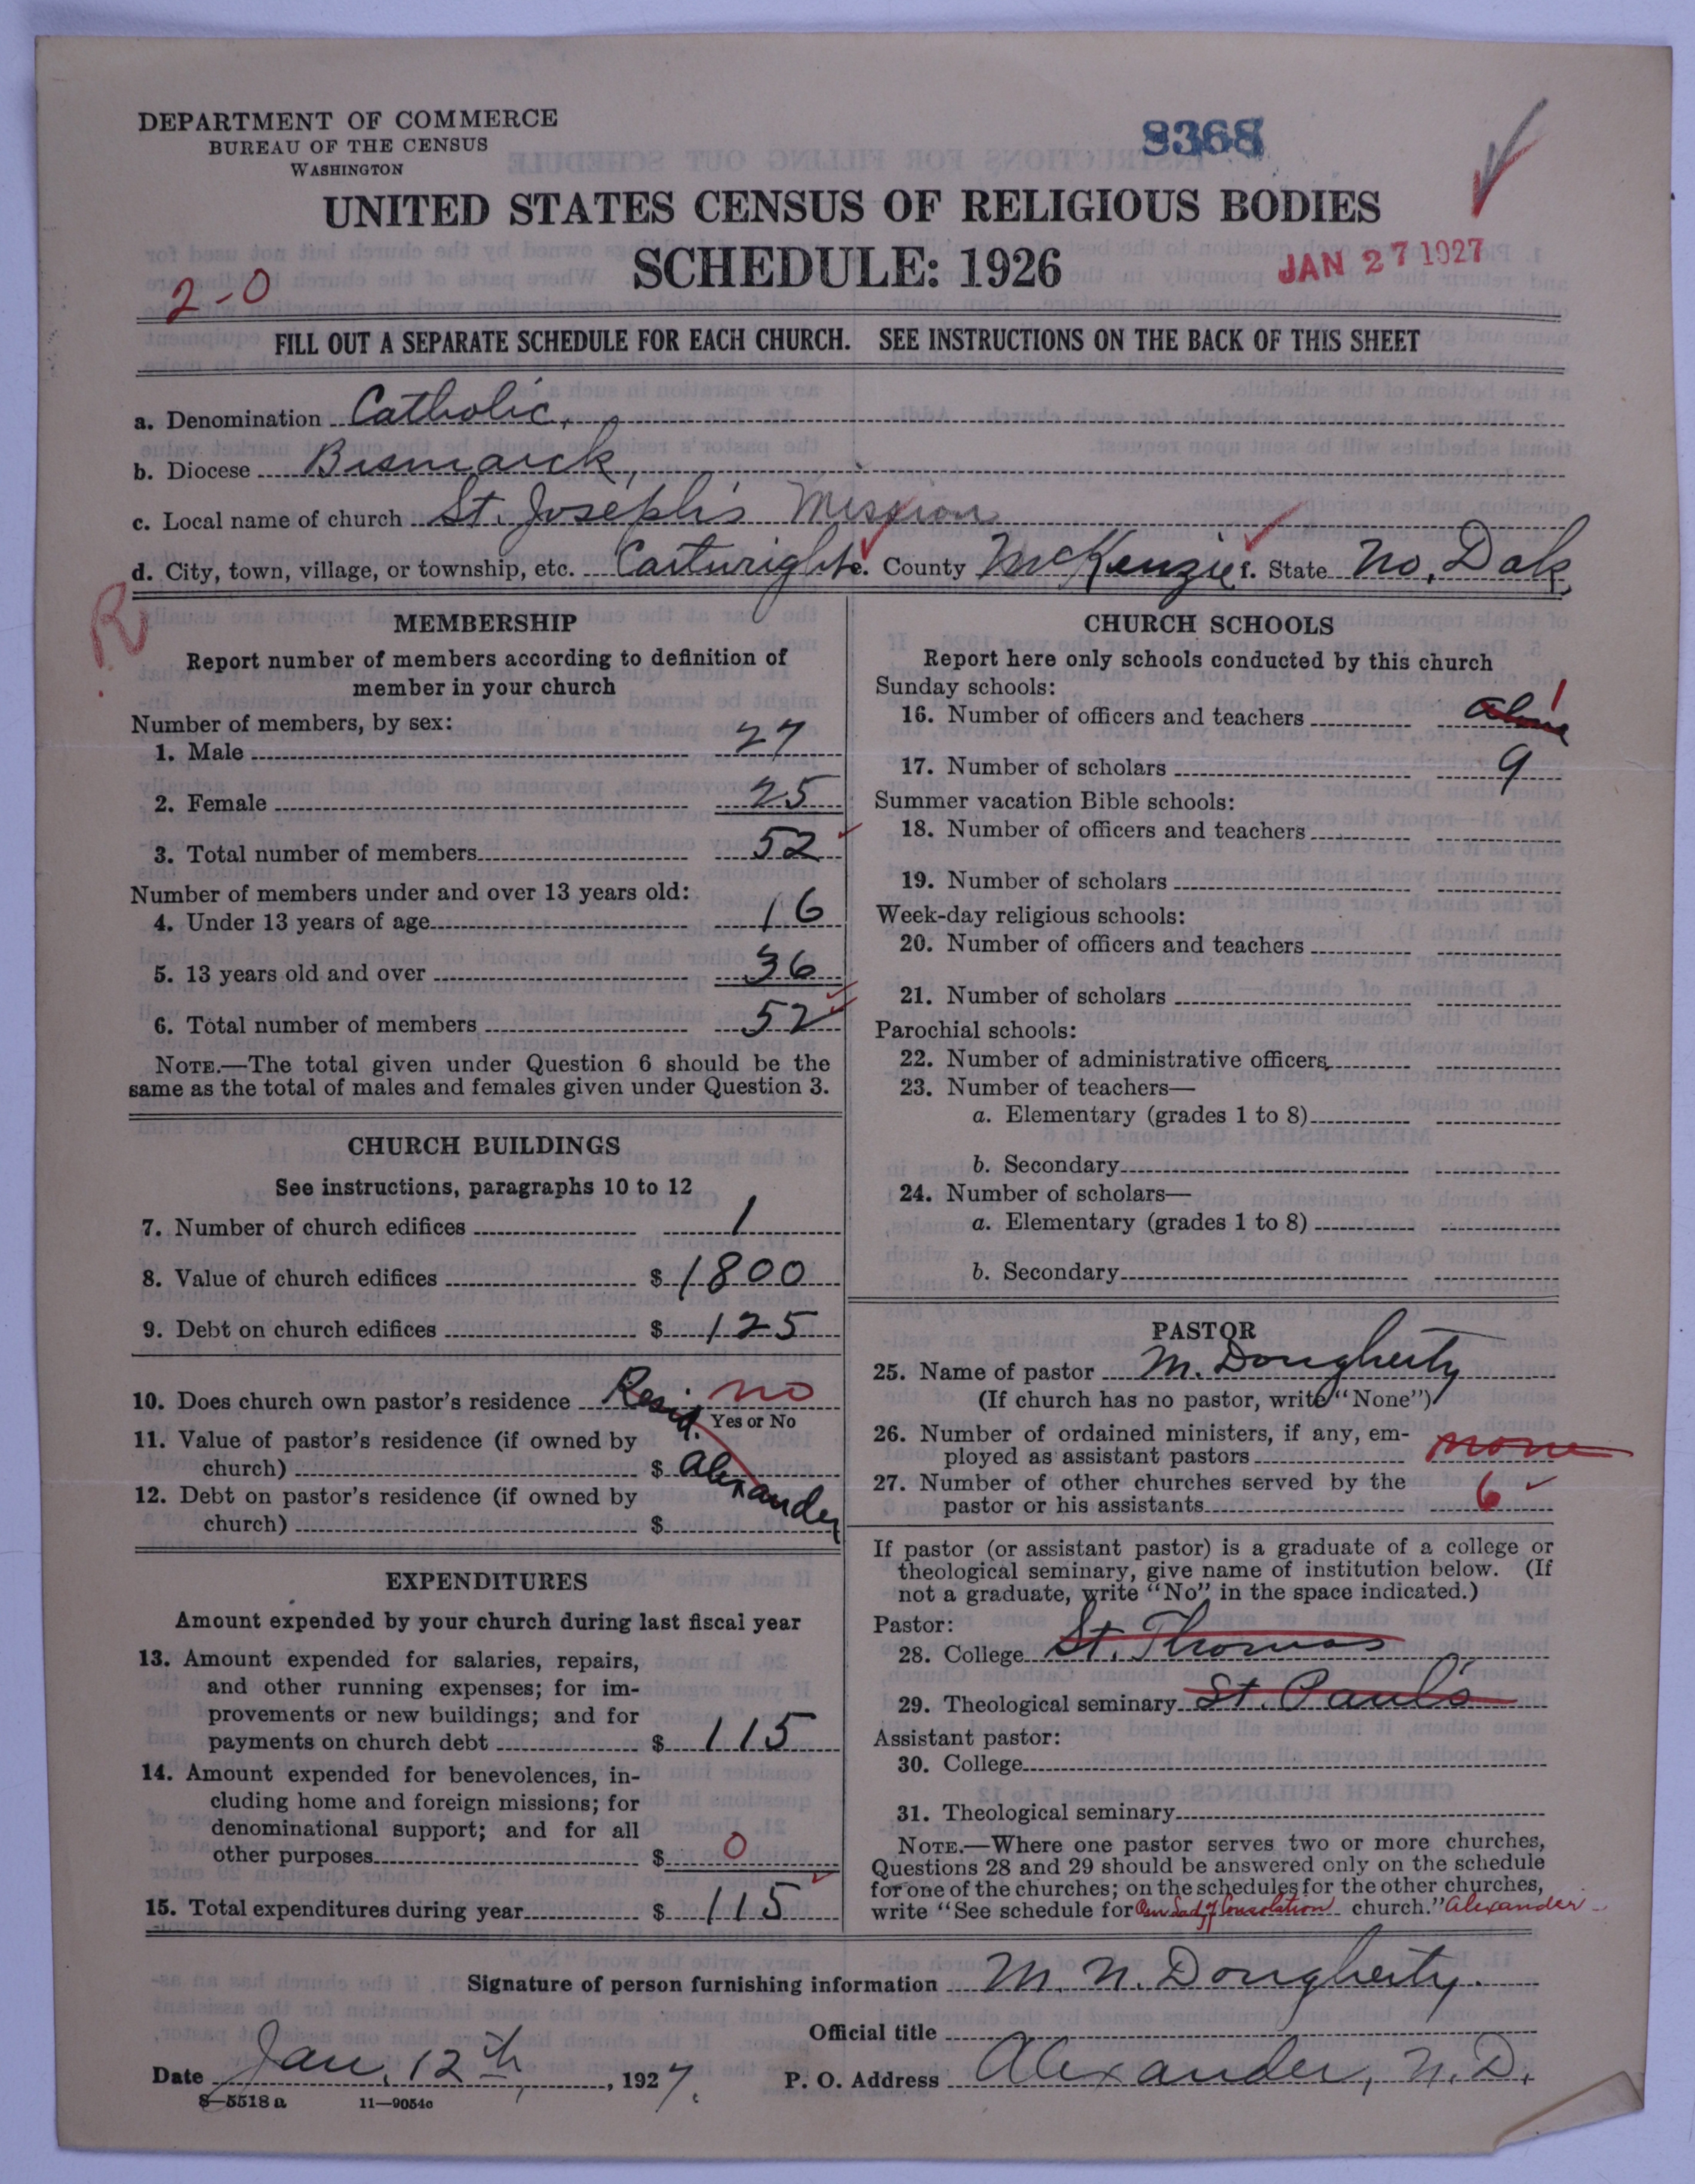 DEPARTMENT OF COMMERCE
BUREAU OF THE CENSUS
WASHINGTON
8368
UNITED STATES CENSUS OF RELIGIOUS BODIES
SCHEDULE: 1926
JAN 27 1927
2-0
FILL OUT A SEPARATE SCHEDULE FOR EACH CHURCH. SEE INSTRUCTIONS ON THE BACK OF THIS SHEET
a. Denomination Catholic,
b. Diocese Bismarck,
c. Local name of church St. Joseph's Mission
d. City, town, village, or township, etc. Cartwright e. County McKenzie f. State No. Dak.
R
MEMBERSHIP
Report number of members according to definition of
member in your church
Number of members, by sex:
1. Male 27
2. Female 25
3. Total number of members 52
Number of members under and over 13 years old:
4. Under 13 years of age 16
5. 13 years old and over 36
6. Total number of members 52
NOTE.—The total given under Question 6 should be the
same as the total of males and females given under Question 3.
CHURCH BUILDINGS
See instructions, paragraphs 10 to 12
7. Number of church edifices 1
8. Value of church edifices $ 1800
9. Debt on church edifices $ 125
10. Does church own pastor's residence Resid. no
Yes or No
11. Value of pastor's residence (if owned by
church) $ Alexander
12. Debt on pastor's residence (if owned by
church) $
EXPENDITURES
Amount expended by your church during last fiscal year
13. Amount expended for salaries, repairs,
and other running expenses; for im-
provements or new buildings; and for
payments on church debt $ 115
14. Amount expended for benevolences, in-
cluding home and foreign missions; for
denominational support; and for all
other purposes $ 0
15. Total expenditures during year $ 115
CHURCH SCHOOLS
Report here only schools conducted by this church
Sunday schools:
16. Number of officers and teachers 1
17. Number of scholars 9
Summer vacation Bible schools:
18. Number of officers and teachers
19. Number of scholars
Week-day religious schools:
20. Number of officers and teachers
21. Number of scholars
Parochial schools:
22. Number of administrative officers
23. Number of teachers—
a. Elementary (grades 1 to 8)
b. Secondary
24. Number of scholars—
a. Elementary (grades 1 to 8)
b. Secondary
PASTOR
25. Name of pastor M. Dougherty
(If church has no pastor, write "None")
26. Number of ordained ministers, if any, em-
ployed as assistant pastors none
27. Number of other churches served by the
pastor or his assistants 6
If pastor (or assistant pastor) is a graduate of a college or
theological seminary, give name of institution below. (If
not a graduate, write "No" in the space indicated.)
Pastor:
28. College St. Thomas
29. Theological seminary St. Paul's
Assistant pastor:
30. College
31. Theological seminary
NOTE.—Where one pastor serves two or more churches,
Questions 28 and 29 should be answered only on the schedule
for one of the churches; on the schedules for the other churches,
write "See schedule for Our Lady of Consolation church." Alexander
Signature of person furnishing information M. N. Dougherty.
Official title
Date Jan. 12th, 1927. P. O. Address Alexander, N. D.
S-5518 a 11-9054c